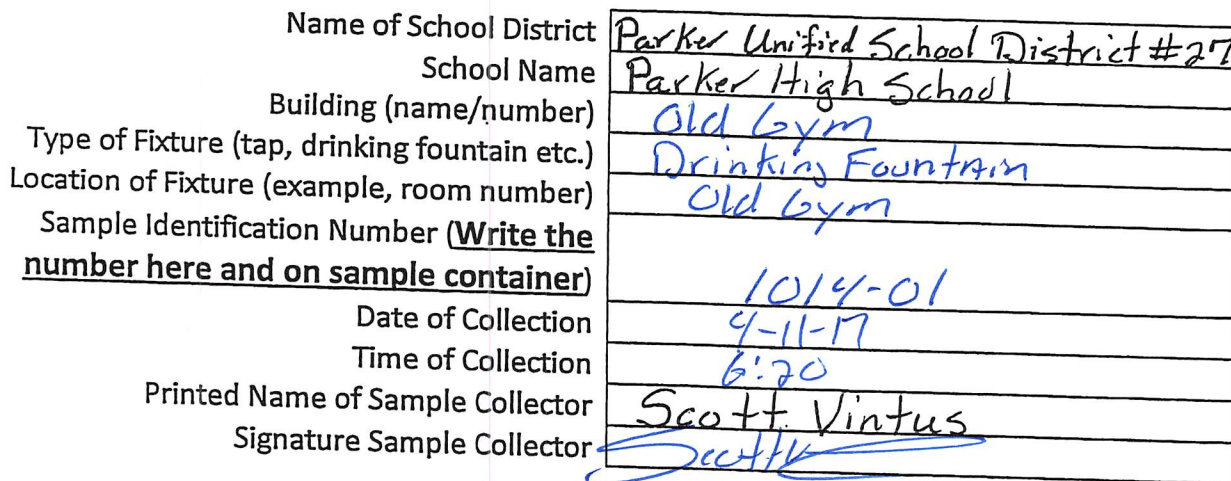 Name of School District Parker Unified School District #27
School Name Parker High School
Building (name/number) Old Gym
Type of Fixture (tap, drinking fountain etc.) Drinking Fountain
Location of Fixture (example, room number) Old Gym
Sample Identification Number (Write the
number here and on sample container) 1014-01
Date of Collection 4-11-17
Time of Collection 6:20
Printed Name of Sample Collector Scott Vintus
Signature Sample Collector Scott V